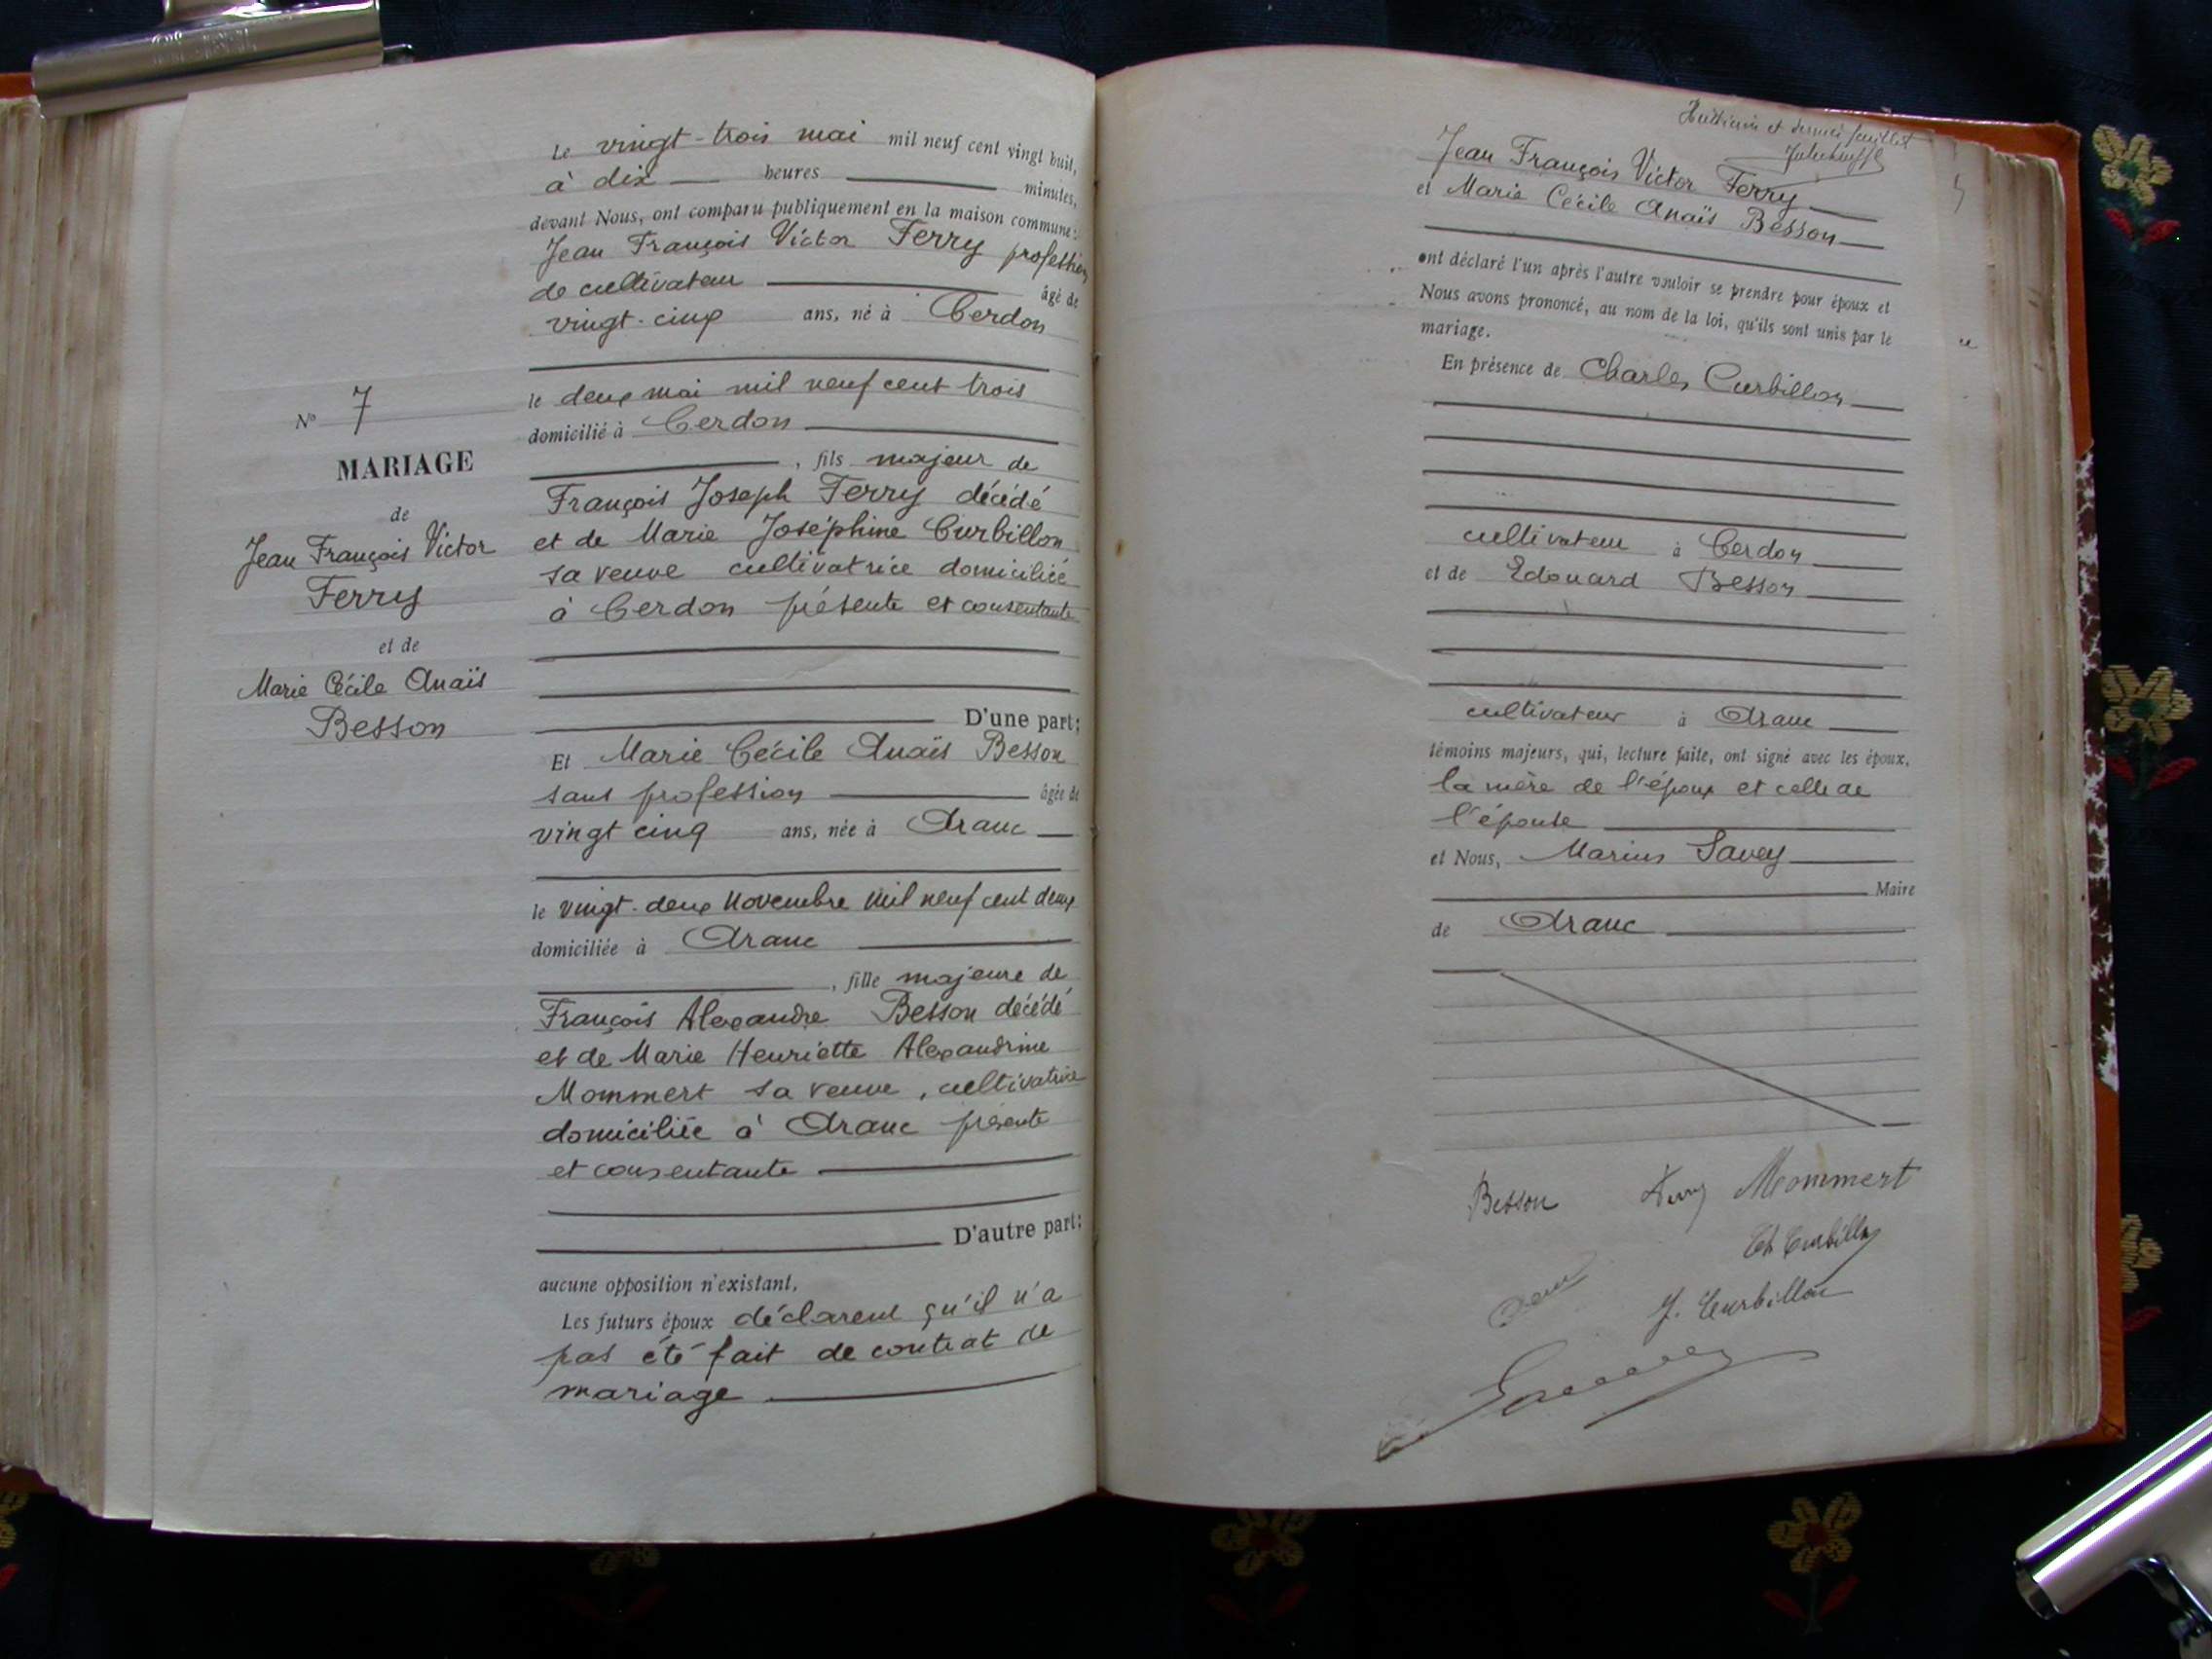 Le vingt-trois mai mil neuf cent vingt huit,
à dix heures minutes,
devant Nous, ont comparu publiquement en la maison commune:
Jean François Victor Ferry profession
de cultivateur âgé de
vingt-cinq ans, né à Cerdon
le deux mai mil neuf cent trois
domicilié à Cerdon
, fils majeur de
François Joseph Ferry décédé
et de Marie Joséphine Curbillon
sa veuve cultivatrice domiciliée
à Cerdon présente et consentante
D'une part;
Et Marie Cécile Anaïs Besson
sans profession âgée de
vingt cinq ans, née à Aranc
le vingt-deux Novembre mil neuf cent deux
domiciliée à Aranc
, fille majeure de
François Alexandre Besson décédé
et de Marie Henriette Alexandrine
Mommert sa veuve, cultivatrice
domiciliée à Aranc présente
et consentante
D'autre part;
aucune opposition n'existant.
Les futurs époux déclarent qu'il n'a
pas été fait de contrat de
mariage
N° 7
MARIAGE
de
Jean François Victor
Ferry
et de
Marie Cécile Anaïs
Besson
Huitième et dernier feuillet
Jean François Victor Ferry
et Marie Cécile Anaïs Besson
ont déclaré l'un après l'autre vouloir se prendre pour époux et
Nous avons prononcé, au nom de la loi, qu'ils sont unis par le
mariage.
En présence de Charles Curbillon
cultivateur à Cerdon
et de Edouard Besson
cultivateur à Aranc
témoins majeurs, qui, lecture faite, ont signé avec les époux,
la mère de l'époux et celle de
l'épouse
et Nous, Marius Savey
Maire
de Aranc
Besson Ferry Mommert
Ch Curbillon
J. Curbillon